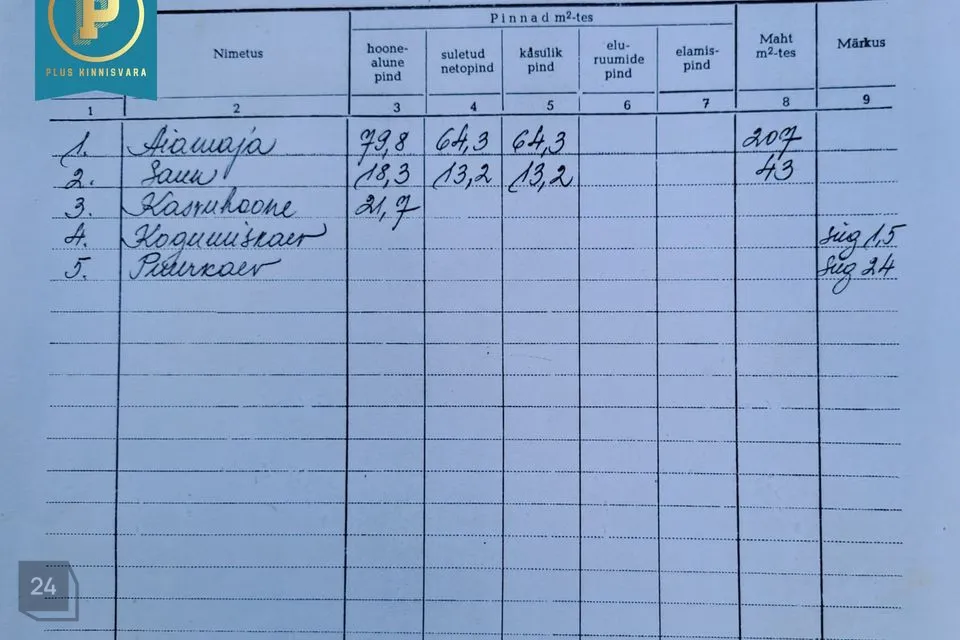 P
PLUS KINNISVARA
Pinnad m²-tes
Nimetus
hoone-
alune
pind
suletud
netopind
kåsulik
pind
elu-
ruumide
pind
elamis-
pind
Maht
m²-tes
Märkus
1 2 3 4 5 6 7 8 9
1. Aiamaja 79,8 64,3 64,3 207
2. Saun 18,3 13,2 13,2 43
3. Kasvuhoone 21,7
4. Kogumiskaev süg 1,5
5. Puurkaev süg 24
24